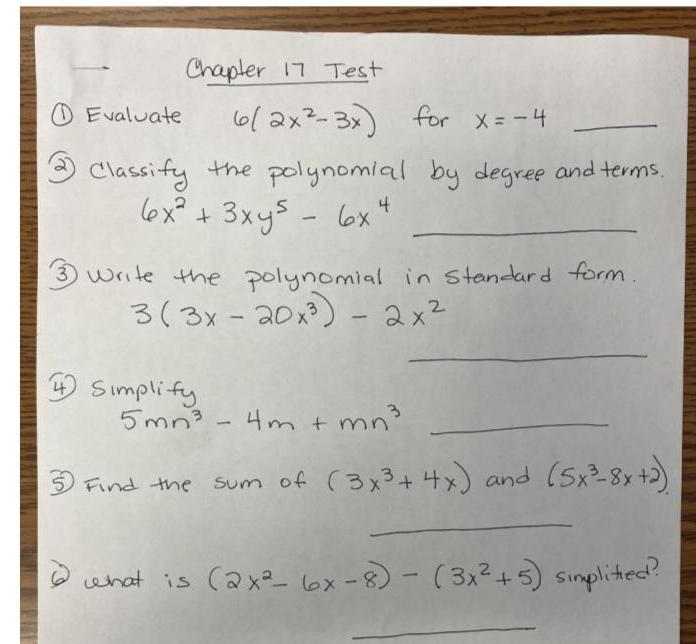 Chapter 17 Test
① Evaluate 6(2x²-3x) for x = -4
② Classify the polynomial by degree and terms.
6x² + 3xy⁵ - 6x⁴
③ Write the polynomial in standard form.
3(3x - 20x³) - 2x²
④ Simplify
5mn³ - 4m + mn³
⑤ Find the sum of (3x³+4x) and (5x³-8x+2).
⑥ what is (2x²-6x-8) - (3x²+5) simplified?